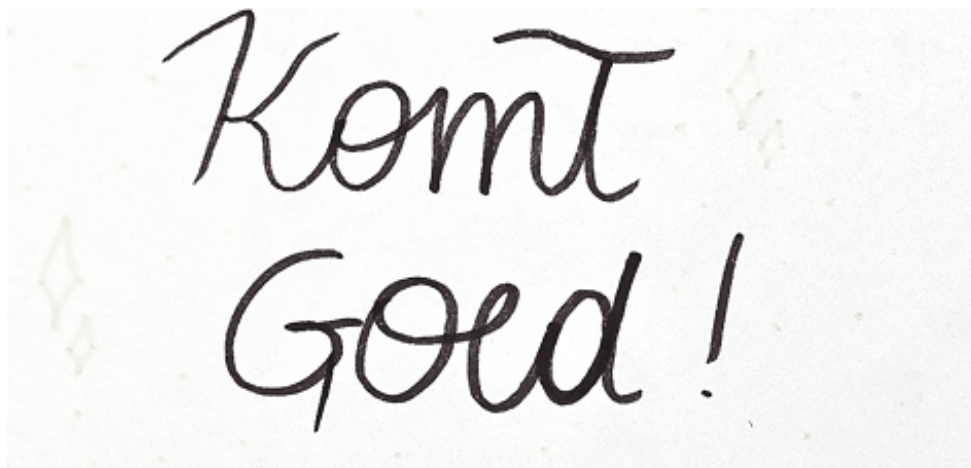 Komt
Goed!